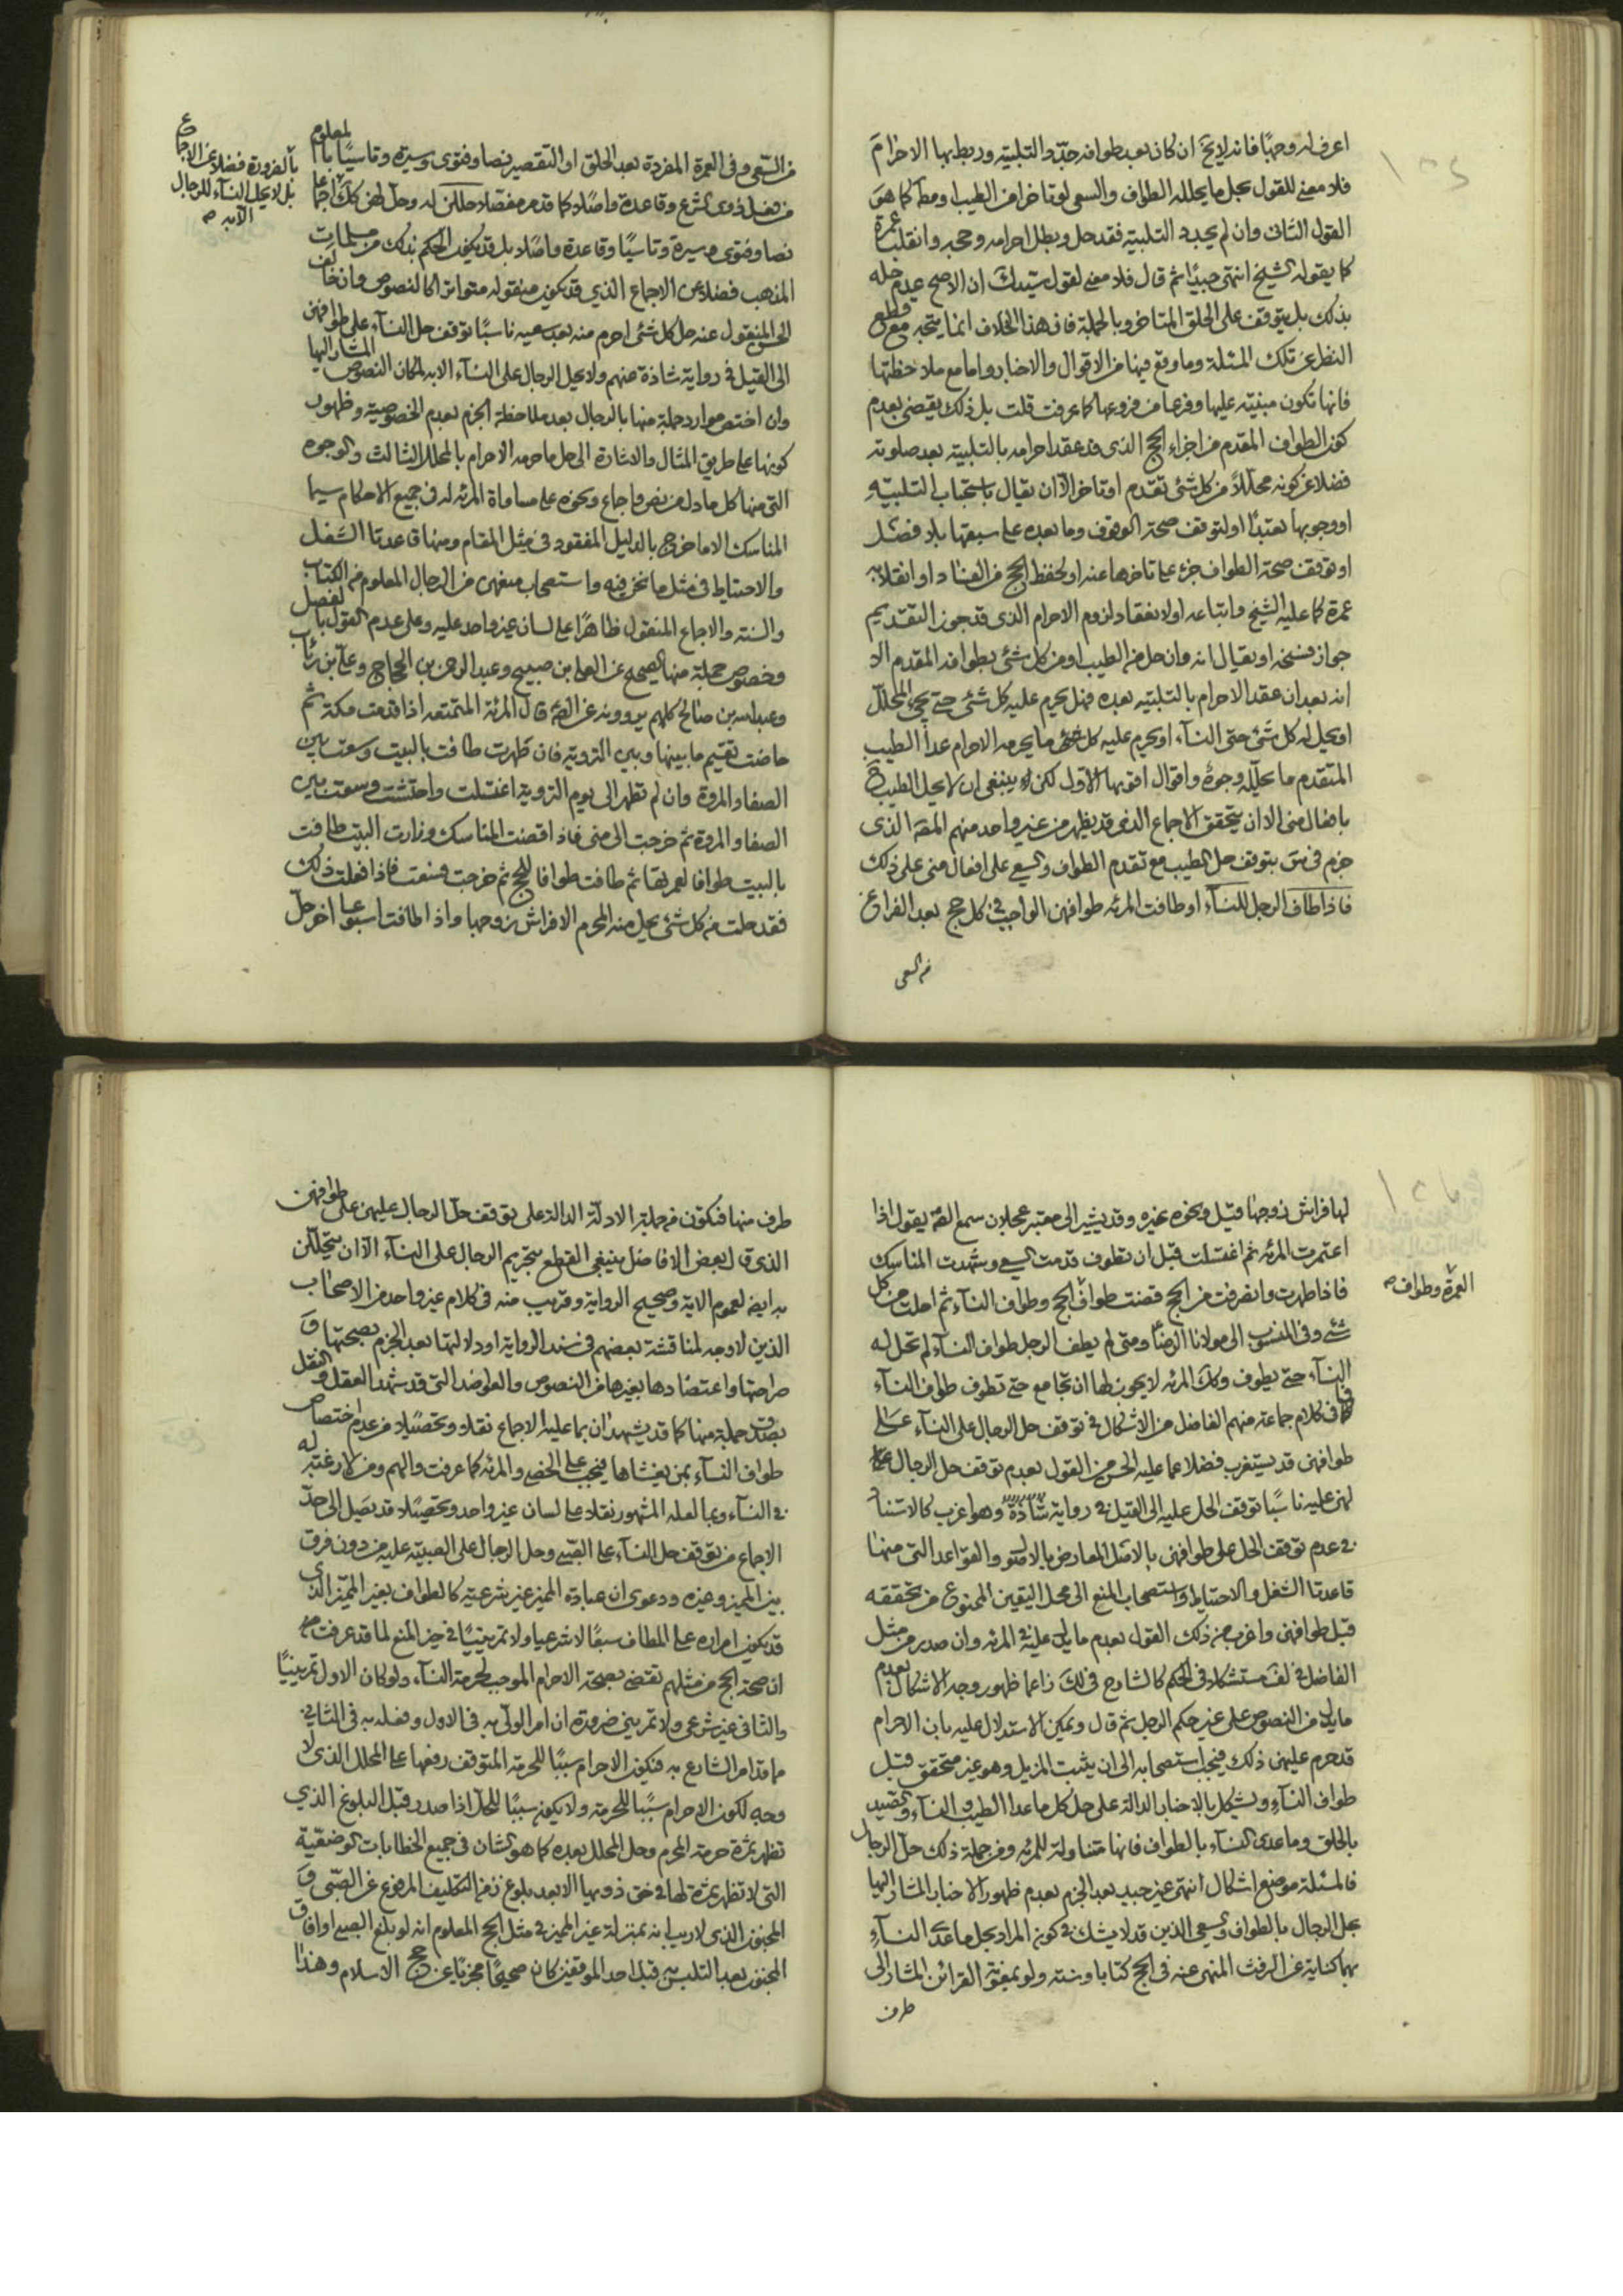 اعرف له وجها فانه لا يخ ان كان بعد طوافه جدد التلبية وربط بها الاحرام
فلا معنى للقول بحل ما يحلله الطواف والسعى لو تاخر من الطيب او مط كما هو
القول الثانى وان لم يجدد التلبية فقد حل وبطل احرامه وحجه وانقلب عمرة
كما يقوله الشيخ انتهى جيدا ثم قال فلا معنى لقول سيدك ان الاصح عدم حله
بذلك بل يتوقف على الحلق المتاخر وبالجملة فان هذا الخلاف انما يتجه مع قطع
النظر عن تلك المسئلة وما وقع فيها من الاقوال والاخبار واما مع ملاحظتها
فانها تكون مبنية عليها وفرعا من فروعها كما عرفت قلت بل ذلك يقضى بعدم
كون الطواف المقدم من اجزاء الحج الذى قد عقد احرامه بالتلبية بعد صلوته
فضلا عن كونه محللا من كل شئ تقدم او تاخر الا ان يقال باستحباب التلبية
او وجوبها تعبدا او لتوقف صحة الوقوف وما بعده على سبقها بلا فصل
او توقف صحة الطواف جزء على تاخرها عنه او لحفظ الحج من الفساد او انقلابه
عمرة كما عليه الشيخ واتباعه او لانعقاد لزوم الاحرام الذى قد جوز التقديم
جواز فسخه او يقال انه وان حل من الطيب او من كل شئ بطوافه المقدم الا
انه بعد ان عقد الاحرام بالتلبية بعده فهل يحرم عليه كل شئ حتى يجئ المحلل
او يحل له كل شئ حتى النسآء او يحرم عليه كل شئ ما يحرمه الاحرام عدا الطيب
المتقدم ما يحلله وجوه واقوال اقويها الاول لكن ينبغى ان لا يحل الطيب ح
بافعال منى الا ان يتحقق الاجماع الذى قد يظهر من غير واحد منهم المقد الذى
جزم فى بتوقف حل الطيب مع تقدم الطواف والسعى على افعال منى على ذلك
فاذا طاف الرجل للنسآء او طافت المرئه طوافهن الواجب فى كل حج بعد الفراغ
من السعى
من السعى وفى العمرة المفردة بعد الحلق او التقصير نصا وفتوى وسيرة وتاسيا بالمعلوم
بالضرورة فضلا عن الاجماع
بل لا يحل النسآء للرجال
الا به ص
من فعل ذوى الشرع وقاعدة واصلا كما قد مر مفصلا حللن له وحل لهن كك اجماعا
نصا وفتوى وسيرة وتاسيا وقاعدة واصلا بل قد يكون الحكم بذلك من مسلمات
المذهب فضلا عن الاجماع الذى قد يكون منقوله متواترا كالنصوص وان خالف
الحسن المنقول عنه حل كل شئ احرم منه بعد سعيه ناسبا توقف حل النسآء على طوافهن
الى القيل فى رواية شاذة عنهم ولا يحل الرجال على النسآء الا به لمكان النصوص المشار اليها
وان اختص موارد جملة منها بالرجال بعد ملاحظة الجزم بعدم الخصوصية وظهور
كونها على طريق المثال والاشارة الى حل ما حرمه الاحرام بالمحلل الثالث والوجوه
التى منها كل ما دل من نص واجماع ونحوه على مساواة المرئه له فى جميع الاحكام سيما
المناسك الا ما خرج بالدليل المفقود فى مثل المقام ومنها قاعدتا الشغل
والاحتياط فى مثل ما نحن فيه واستصحاب منعهن من الرجال المعلوم من الكتاب
والسنة والاجماع المنقول ظاهرا على لسان غير واحد عليه وعلى عدم القول بالفصل
وخصوص جملة منها الصحيح عن العلا بن صبيح وعبد الرحمن بن الحجاج وعلى بن رئاب
وعبد الله بن صالح كلهم يروونه عن الصم قال المرئة المتمتعه اذا قدمت مكة ثم
حاضت تقيم ما بينها وبين التروية فان طهرت طافت بالبيت وسعت بين
الصفا والمروة وان لم تطهر الى يوم التروية اغتسلت واحتشت وسعت بين
الصفا والمروة ثم خرجت الى منى فاذا قضت المناسك وزارت البيت طافت
بالبيت طوافا لعمرتها ثم طافت طوافا للحج ثم خرجت فسعت فاذا فعلت ذلك
فقد حلت من كل شئ يحل منه المحرم الا فراش زوجها واذا طافت اسبوعا اخر حل
لها فراش زوجها قيل ونحوه غيره وقد يشير الى معتبر عجلان سمع الصم يقول اذا
اعتمرت المرئه ثم اغتسلت قبل ان تطوف قدمت السعى وشهدت المناسك
فاذا طهرت وانصرفت من الحج قضت طواف الحج وطواف النسآء ثم احلت من كل
العمرة وطواف ص
شئ وفى المنسوب الى مولانا الرضا ومتى لم يطف الرجل طواف النسآء لم تحل له
النسآء حتى يطوف وكك المرئه لا يجوز لها ان تجامع حتى تطوف طواف النسآء
فما فى كلام جماعة منهم الفاضل من الاشكال فى توقف حل الرجال على النسآء على
طوافهن قد يستغرب فضلا عما عليه الحسن من القول بعدم توقف حل الرجال
لهن عليه ناسبا توقف الحل عليه الى القيل فى رواية شاذة وهو اغرب كالاستناد
فى عدم توقف الحل على طوافهن بالاصل المعارض بالاصول والقواعد التى منها
قاعدتا الشغل والاحتياط واستصحاب المنع الى محل اليقين الممنوع من تحققه
قبل طوافهن واغرب من ذلك القول بعدم ما يدل عليه فى المرئه وان صدر من مثل
الفاضل فى لف مستشكلا فى الحكم كالشارح فى لك زاعما ظهور وجه الاشكال بعدم
ما يدل من النصوص على غير حكم الرجل ثم قال ويمكن الاستدلال عليه بان الاحرام
قد حرم عليهن ذلك فيجب استصحابه الى ان يثبت المزيل وهو غير متحقق قبل
طواف النسآء ويشكل بالاخبار الدالة على حل كل ما عدا الطيب والنسآء والصيد
بالحلق وما عدى النسآء بالطواف فانها متناولة للمرئه ومن جملة ذلك حل الرجال
فالمسئلة موضع اشكال انتهى غير جيد بعد الجزم بعدم ظهور الاخبار المشار اليها
بحل الرجال بالطواف والسعى الذين قد لا يشك فى كون المراد بحل ما عدى النسآء
بهما كناية عن الرفث المنهى عنه فى الحج كتابا وسنة ولو بمعونة القرائن المشار الى
طرف
طرف منها فتكون من جملة الادلة الدالة على توقف حل الرجال عليهن على طوافهن
الذى قال بعض الافاضل ينبغى القطع بتحريم الرجال على النسآء الا ان يتحللن
به ايضا لعموم الاية وصحيح الرواية وقريب منه فى كلام غير واحد من الاصحاب
الذين لا وجه لمناقشة بعضهم فى سند الرواية او دلالتها بعد الجزم بصحتها و
صراحتها واعتضادها بغيرها من النصوص والعواضد التى قد شهد العقل والنقل
بصدق جملة منها كما قد يشهدان بما عليه الاجماع نقلا وتحصيلا من عدم اختصاص
طواف النسآء بمن يغشاها فيجب على الخصى والمرئه كما عرفت والهم ومن لا رغبة له
فى النسآء وبما لعله المشهور نقلا على لسان غير واحد وتحصيلا قد يصل الى حد
الاجماع من توقف حل النسآء على الصبى وحل الرجال على الصبية عليه من دون فرق
بين المميز وغيره ودعوى ان عبادة المميز غير شرعية كالطواف بغير المميز الذى
قد يكون امراره على المطاف سبعا لا شرعيا ولا تمرينيا فى حيز المنع لما قد عرفت
ان صحة الحج من مثلهم تقضى بصحة الاحرام الموجب لحرمة النسآء ولو كان الاول تمرينيا
والثانى غير شرعى ولا تمرينى ضرورة ان امر الولى به فى الاول وفعله به فى الثانى
مما قد امر الشارع به فيكون الاحرام سببا للحرمة المتوقف رفعها على المحلل الذى لا
وجه لكون الاحرام سببا للحرمة ولا يكون سببا للحل اذا صدر قبل البلوغ الذى
تظهر ثمرة حرمة المحرم وحل المحلل بعده كما هو الشان فى جميع الخطابات الوضعية
التى لا تظهر ثمرة لها فى حق ذويها الا بعد بلوغ زمن التكليف المرفوع عن الصبى و
المجنون الذى لا ريب انه بمنزلة غير المميز فى مثل الحج المعلوم انه لو بلغ الصبى او افاق
المجنون بعد التلبس به قبل احد الموقفين كان صحيحا مجزيا عن حج الاسلام وهذا